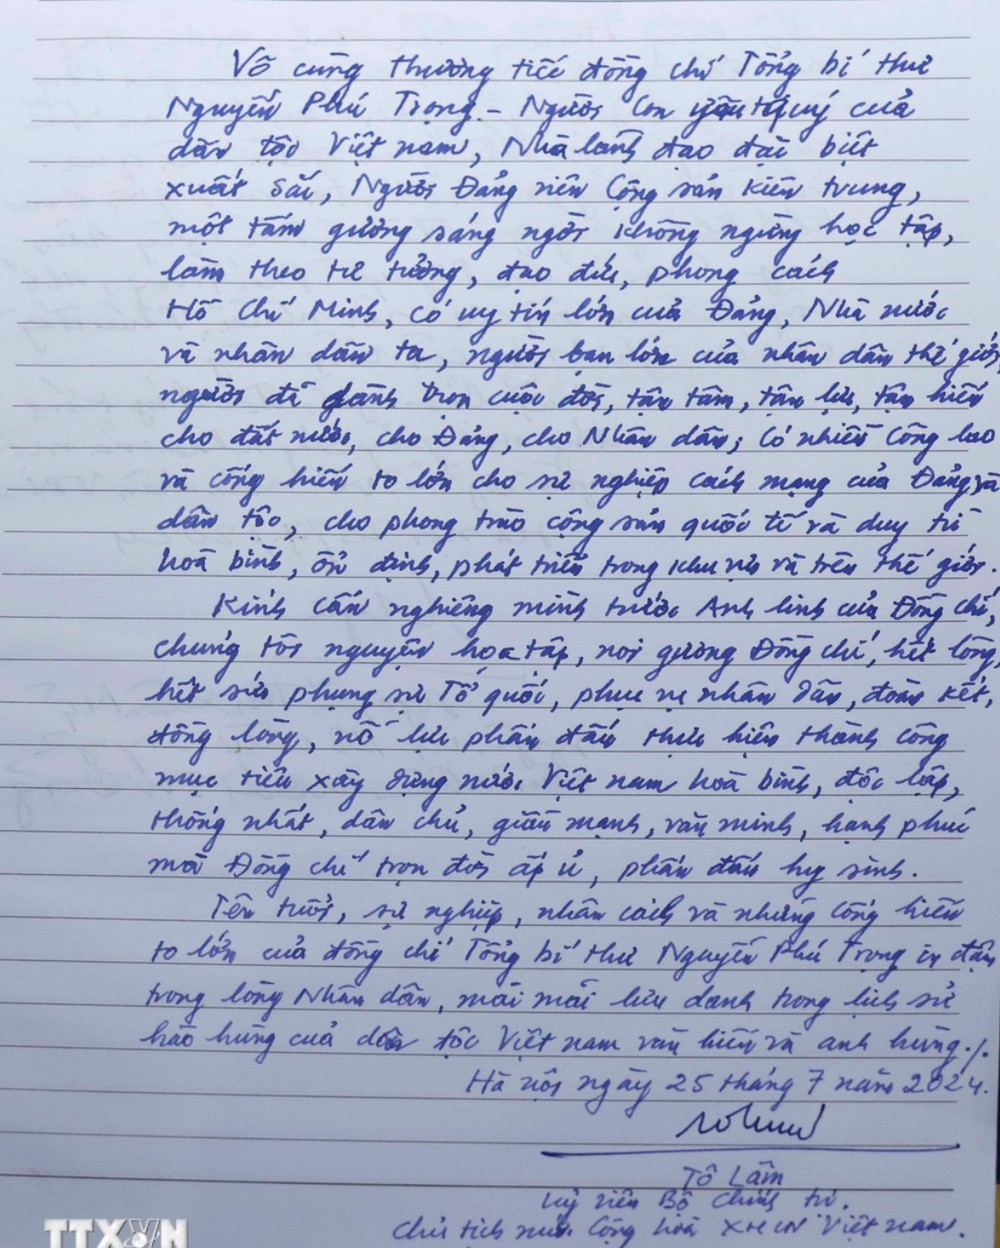 Vô cùng thương tiếc đồng chí Tổng bí thư
Nguyễn Phú Trọng - Người con yêu quý của
dân tộc Việt nam, Nhà lãnh đạo đặc biệt
xuất sắc, Người Đảng viên Cộng sản kiên trung,
một tấm gương sáng ngời không ngừng học tập,
làm theo tư tưởng, đạo đức, phong cách
Hồ Chí Minh, có uy tín lớn của Đảng, Nhà nước
và nhân dân ta, người bạn lớn của nhân dân thế giới,
người đã dành trọn cuộc đời, tận tâm, tận lực, tận hiến
cho đất nước, cho Đảng, cho Nhân dân; có nhiều công lao
và cống hiến to lớn cho sự nghiệp cách mạng của Đảng và
dân tộc, cho phong trào cộng sản quốc tế và duy trì
hoà bình, ổn định, phát triển trong khu vực và trên thế giới.
Kính cẩn nghiêng mình trước Anh linh của Đồng chí,
chúng tôi nguyện học tập, noi gương Đồng chí, hết lòng,
hết sức phụng sự Tổ quốc, phục vụ nhân dân, đoàn kết,
đồng lòng, nỗ lực phấn đấu thực hiện thành công
mục tiêu xây dựng nước Việt nam hoà bình, độc lập,
thống nhất, dân chủ, giàu mạnh, văn minh, hạnh phúc
mà Đồng chí trọn đời ấp ủ, phấn đấu hy sinh.
Tên tuổi, sự nghiệp, nhân cách và những cống hiến
to lớn của đồng chí Tổng bí thư Nguyễn Phú Trọng in đậm
trong lòng Nhân dân, mãi mãi lưu danh trong lịch sử
hào hùng của dân tộc Việt nam văn hiến và anh hùng./.
Hà nội ngày 25 tháng 7 năm 2024.
Tô Lâm
Uỷ viên Bộ Chính trị.
Chủ tịch nước Cộng hoà XHCN Việt nam.
TTXVN